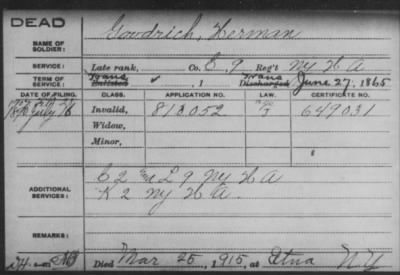 DEAD
NAME OF SOLDIER: Goodrich, Herman
SERVICE: Late rank, Co. E, 9 Reg't NY H A
TERM OF SERVICE: Trans Enlisted , 1 Trans Discharged June 27, 1865
DATE OF FILING. CLASS. APPLICATION NO. LAW. CERTIFICATE NO.
July Invalid, 813052 649031
Widow,
Minor,
ADDITIONAL SERVICES: C 2 & L 9 NY H A
K 2 NY H A.
REMARKS:
Died Mar 25, 1915, at Etna NY